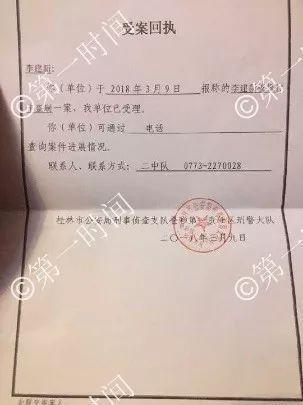 受案回执
李建阳:
你(单位)于2018年3月9日 报称的李建阳
一案,我单位已受理。
你(单位)可通过 电话
查询案件进展情况。
联系人、联系方式: 二中队 0773-2270028
桂林市公安局刑事侦查支队 区刑警大队
二〇一八年三月九日
©第一时间
©第一时间
©第一时间
©第一时间
©第一时间